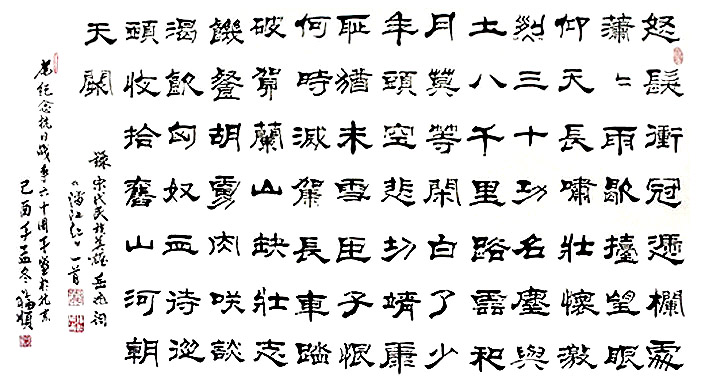 怒髮衝冠憑欄處
瀟々雨歇擡望眼
仰天長嘯壯懷激
烈三十功名塵與
土八千里路雲和
月莫等閑白了少
年頭空悲切靖康
恥猶未雪臣子恨
何時滅駕長車踏
破賀蘭山缺壯志
饑餐胡虜肉咲談
渴飲匈奴血待從
頭收拾舊山河朝
天闕
錄宋代民族英雄岳飛詞
《滿江紅》一首
為紀念抗日战争六十周年書於北京
乙酉年孟冬